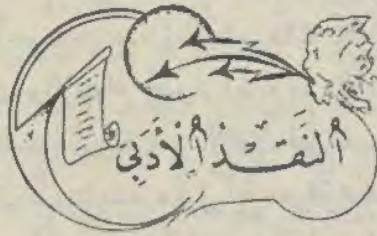 أَلنَّقْدُ أَلْأَدَبِي